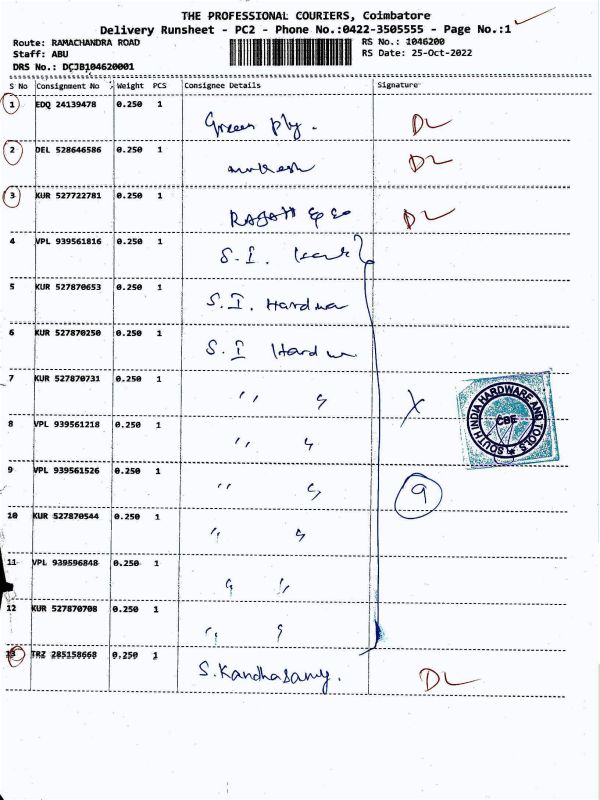 THE PROFESSIONAL COURIERS, Coimbatore
Delivery Runsheet - PC2 - Phone No.:0422-3505555 - Page No.:1
Route: RAMACHANDRA ROAD RS No.: 1046200
Staff: ABU RS Date: 25-Oct-2022
DRS No.: DCJB104620001
S No Consignment No Weight PCS Consignee Details Signature
1 EDQ 24139478 0.250 1
Green ply. DL
2 DEL 528646586 0.250 1
DL
3 KUR 527722781 0.250 1
DL
4 VPL 939561816 0.250 1
S.I.
5 KUR 527870653 0.250 1
S.I. Hardwa
6 KUR 527870250 0.250 1
S.I Hardw
7 KUR 527870731 0.250 1
" "
X
8 VPL 939561218 0.250 1
" "
SOUTH INDIA HARDWARE AND TOOLS
CBE
9 VPL 939561526 0.250 1
" "
9
10 KUR 527870544 0.250 1
" "
11 VPL 939596848 0.250 1
" "
12 KUR 527870708 0.250 1
" "
13 TRZ 285158668 0.250 1
S.Kandhasamy. DL